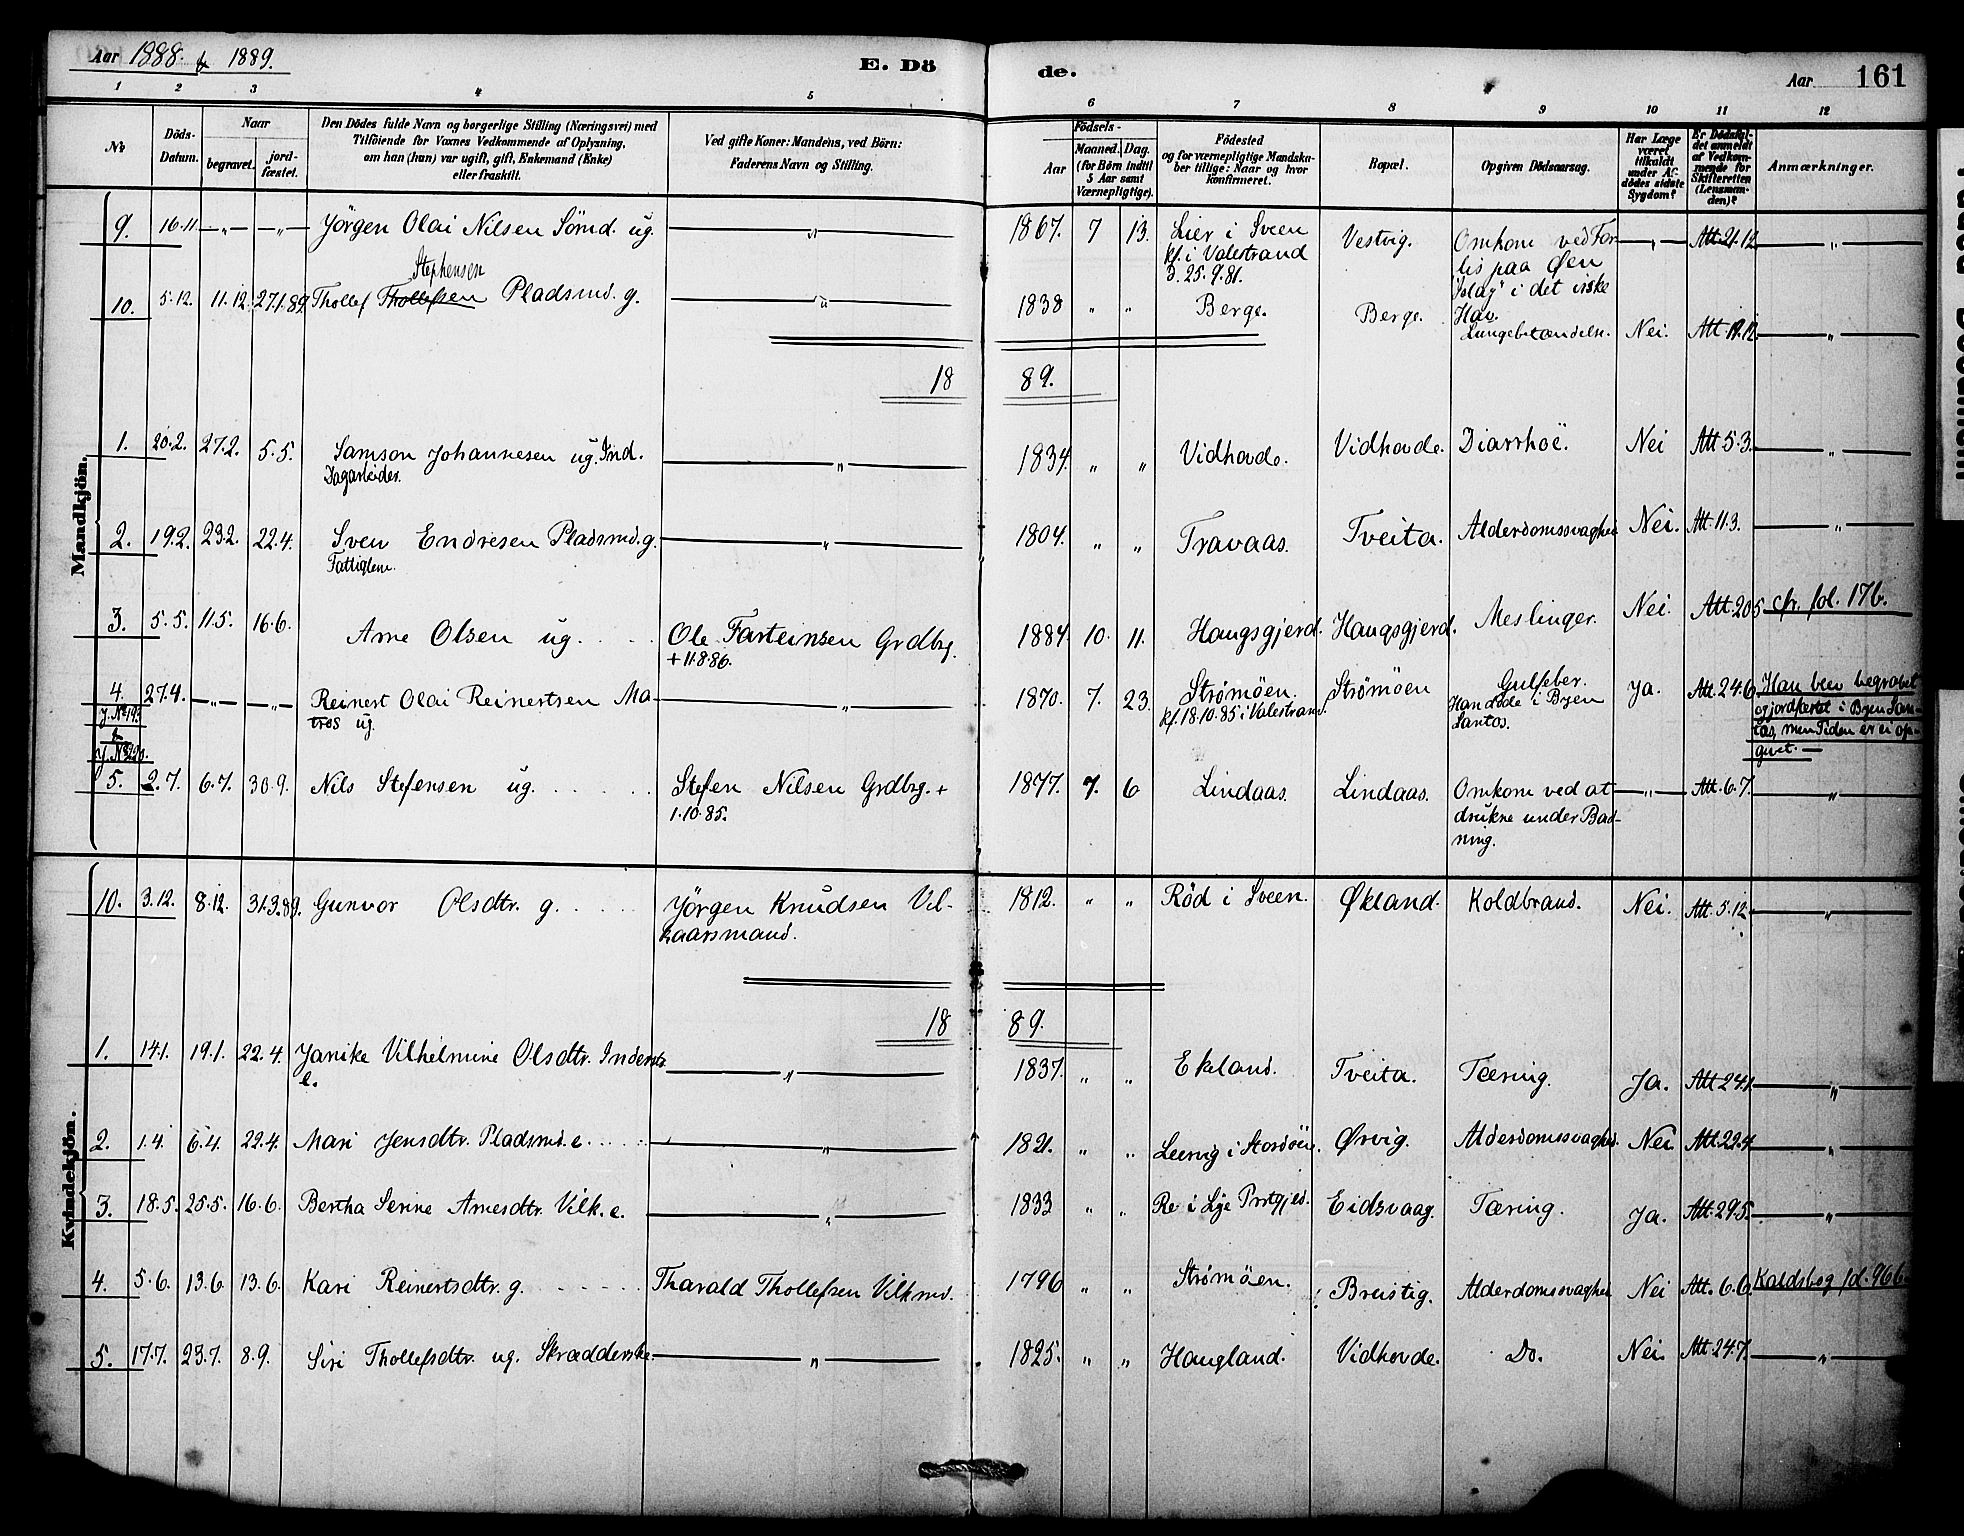 Aar 1888 & 1889.
E. Dö
de.
Aar 161
1 2 3 4 5 6 7 8 9 10 11 12
No
Döds-Datum.
Naar
begravet.
jordfæstet.
Den Dödes fulde Navn og borgerlige Stilling (Næringsvei) med
Tilföiende for Voxnes Vedkommende af Oplysning,
om han (hun) var ugift, gift, Enkemand (Enke)
eller fraskilt.
Ved gifte Koner: Mandens, ved Börn:
Faderens Navn og Stilling.
Födsels-
Aar
Maaned. Dag.
(for Börn indtil
5 Aar samt
Værnepligtige).
Födested
og for værnepligtige Mandska-
ber tillige: Naar og hvor
konfirmeret.
Bopæl.
Opgiven Dödsaarsag.
Har Læge
været
tilkaldt
under Af-
dödes sidste
Sygdom?
Er Dödsfal-
det anmeldt
af Vedkom-
mende for
Skifteretten
(Lensman-
den)?
Anmærkninger.
Mandkjön.
9. 16.11 — „ — — „ — Jörgen Olai Nilsen Sömd. ug. „ 1867. 7 13. Lier i Sveen Vestvig. Omkom ved For- — „ — Att. 21.12. „
kf. i Valestrand lis paa Øen
3. 25.9.81. "Islay" i det irske
Stephensen Hav.
10. 5.12. 11.12. 27.1.89. Thollef Thollefsen Pladsmd. g. „ 1838 „ „ Berge. Berge. Lungebetændelse. Nei. Att. 19.12. „
18 89.
1. 20.2. 27.2. 5.5. Samson Johannesen ug. Ind. „ 1834. „ „ Vidhovde. Vidhovde. Diarrhoë. Nei Att. 5.3. „
Dagarbeider.
2. 19.2. 23.2. 22.4. Sven Endresen Pladsmd. g. „ 1804. „ „ Travaas. Tveita. Alderdomssvaghed Nei. Att. 11.3. „
Fattiglem.
3. 5.5. 11.5. 16.6. Arne Olsen ug. Ole Farteinsen Grdbrg. 1884. 10. 11. Haugsgjerd. Haugsgjerd. Meslinger. Nei. Att. 20.5. cfr. fol. 176.
+ 11.8.86.
4. 27.4. — „ — — „ — Reinert Olai Reinertsen Ma- „ 1870. 7. 23. Strømöen. Strømöen Gulfeber. Ja. Att. 24.6. Han blev begravet
J. No 193 tros ug. kf. 18.10.85 i Valestrand. Han döde i Byen og jordfæstet i Byen San-
& Santos. tos, men Tiden er ei op-
J. No 220. givet. —
5. 2.7. 6.7. 30.9. Nils Stefensen ug. Stefen Nilsen Grdbrg. + 1877. 7. 6 Lindaas. Lindaas. Omkom ved at — „ — Att. 6.7. „
1.10.85. drukne under Bad-
ning.
Kvindekjön.
10. 3.12. 8.12. 31.3.89. Gunvor Olsdtr. g. Jörgen Knudsen Vil- 1812. „ „ Röd i Sveen. Økland. Koldbrand. Nei. Att. 5.12. „
kaarsmand.
18 89.
1. 14.1. 19.1. 22.4. Janike Vilhelmine Olsdtr. Inderst „ 1837. „ „ Ekeland. Tveita. Tæring. Ja. Att. 24.1. „
e.
2. 1.4. 6.4. 22.4. Mari Jensdtr. Pladsmd. e. „ 1821. „ „ Leervig i Stordöen. Ørvig. Alderdomssvaghed. Nei. Att. 22.4. „
3. 18.5. 25.5. 16.6. Bertha Serine Arnesdtr. Vilk. e. „ 1833 „ „ Re i Lye Prstgjed. Eidsvaag. Tæring. Ja. Att. 29.5. „
4. 5.6. 13.6. 13.6. Kari Reinertsdtr. g. Tharald Thollefsen Vilkmd. 1796 „ „ Strømöen. Breistig. Alderdomssvaghed Nei Att. 6.6. Kaldsbog fol. 966.
5. 17.7. 23.7. 8.9. Siri Thollefsdtr. ug. Skrædderske. „ 1825. „ „ Haugland. Vidhovde. Do. Nei. Att. 24.7. „